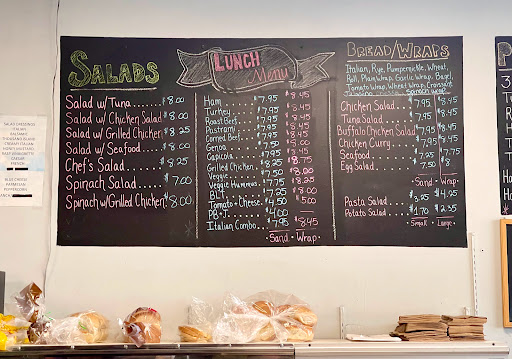 Salads
Salad w/ Tuna...... $8.00
Salad w/ Chicken Salad $8.00
Salad w/ Grilled Chicken $8.25
Salad w/ Seafood.... $8.00
Chef's Salad...... $8.25
Spinach Salad..... $7.00
Spinach w/Grilled Chicken $8.00
Lunch
Menu
Ham $7.95 $8.45
Turkey $7.95 $8.45
Roast Beef $7.95 $8.45
Pastrami $7.95 $8.45
Corned Beef $7.95 $8.45
Genoa $7.50
Capicola
Grilled Chicken $8.75
Veggie
Veggie Hummus $7.75 $8.25
BLT $8.00
Tomato + Cheese $4.50 $5.00
PB + J $4.00
Italian Combo $7.95 $8.45
Sand Wrap
Bread/Wraps
Italian, Rye, Pumpernickle, Wheat,
Roll, Plain Wrap, Garlic Wrap, Bagel,
Tomato Wrap, Wheat Wrap, Croissant
Spinach Wrap
Chicken Salad $7.95 $8.45
Tuna Salad $7.95 $8.45
Buffalo Chicken Salad $7.95 $8.45
Chicken Curry $7.95 $8.45
Seafood $7.25 $7.75
Egg Salad $7.50 $8
Sand Wrap
Pasta Salad $3.25 $4.95
Potato Salad $1.70 $2.35
Small Large
SALAD DRESSINGS
ITALIAN
BALSAMIC
THOUSAND ISLAND
CREAMY ITALIAN
HONEY MUSTARD
RANCH
CAESAR
FRENCH
BLUE CHEESE
P